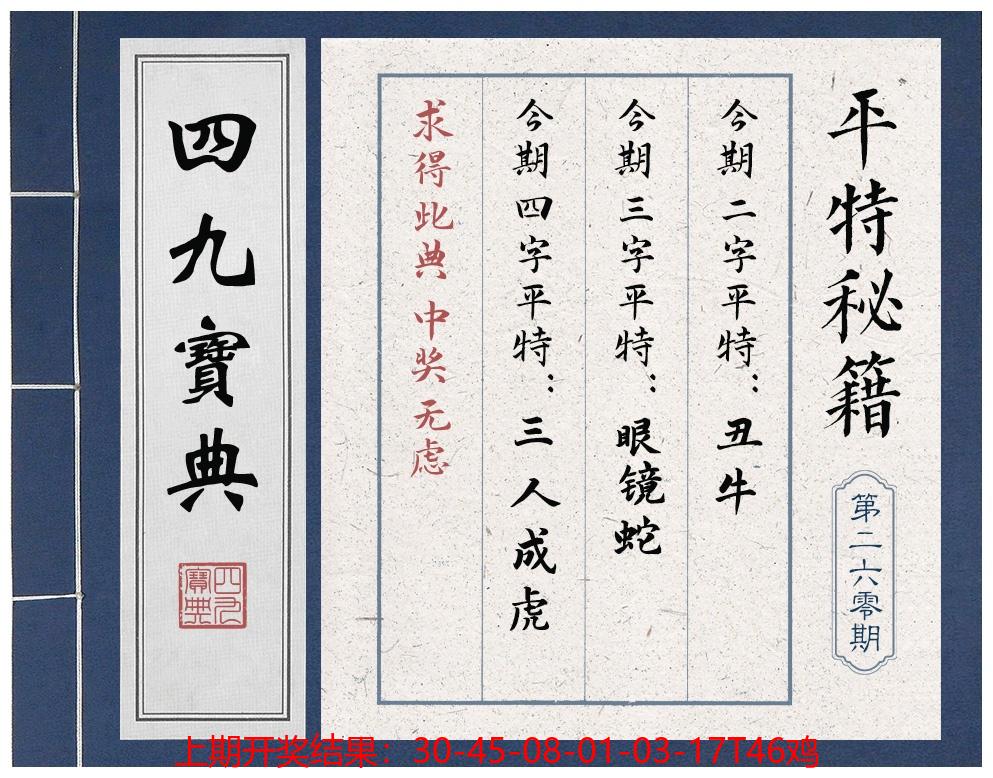 平特秘籍
第二六零期
今期二字平特：丑牛
今期三字平特：眼镜蛇
今期四字平特：三人成虎
求得此典 中奖无虑
四九寶典
四九
寶典
上期开奖结果：30-45-08-01-03-17T46鸡